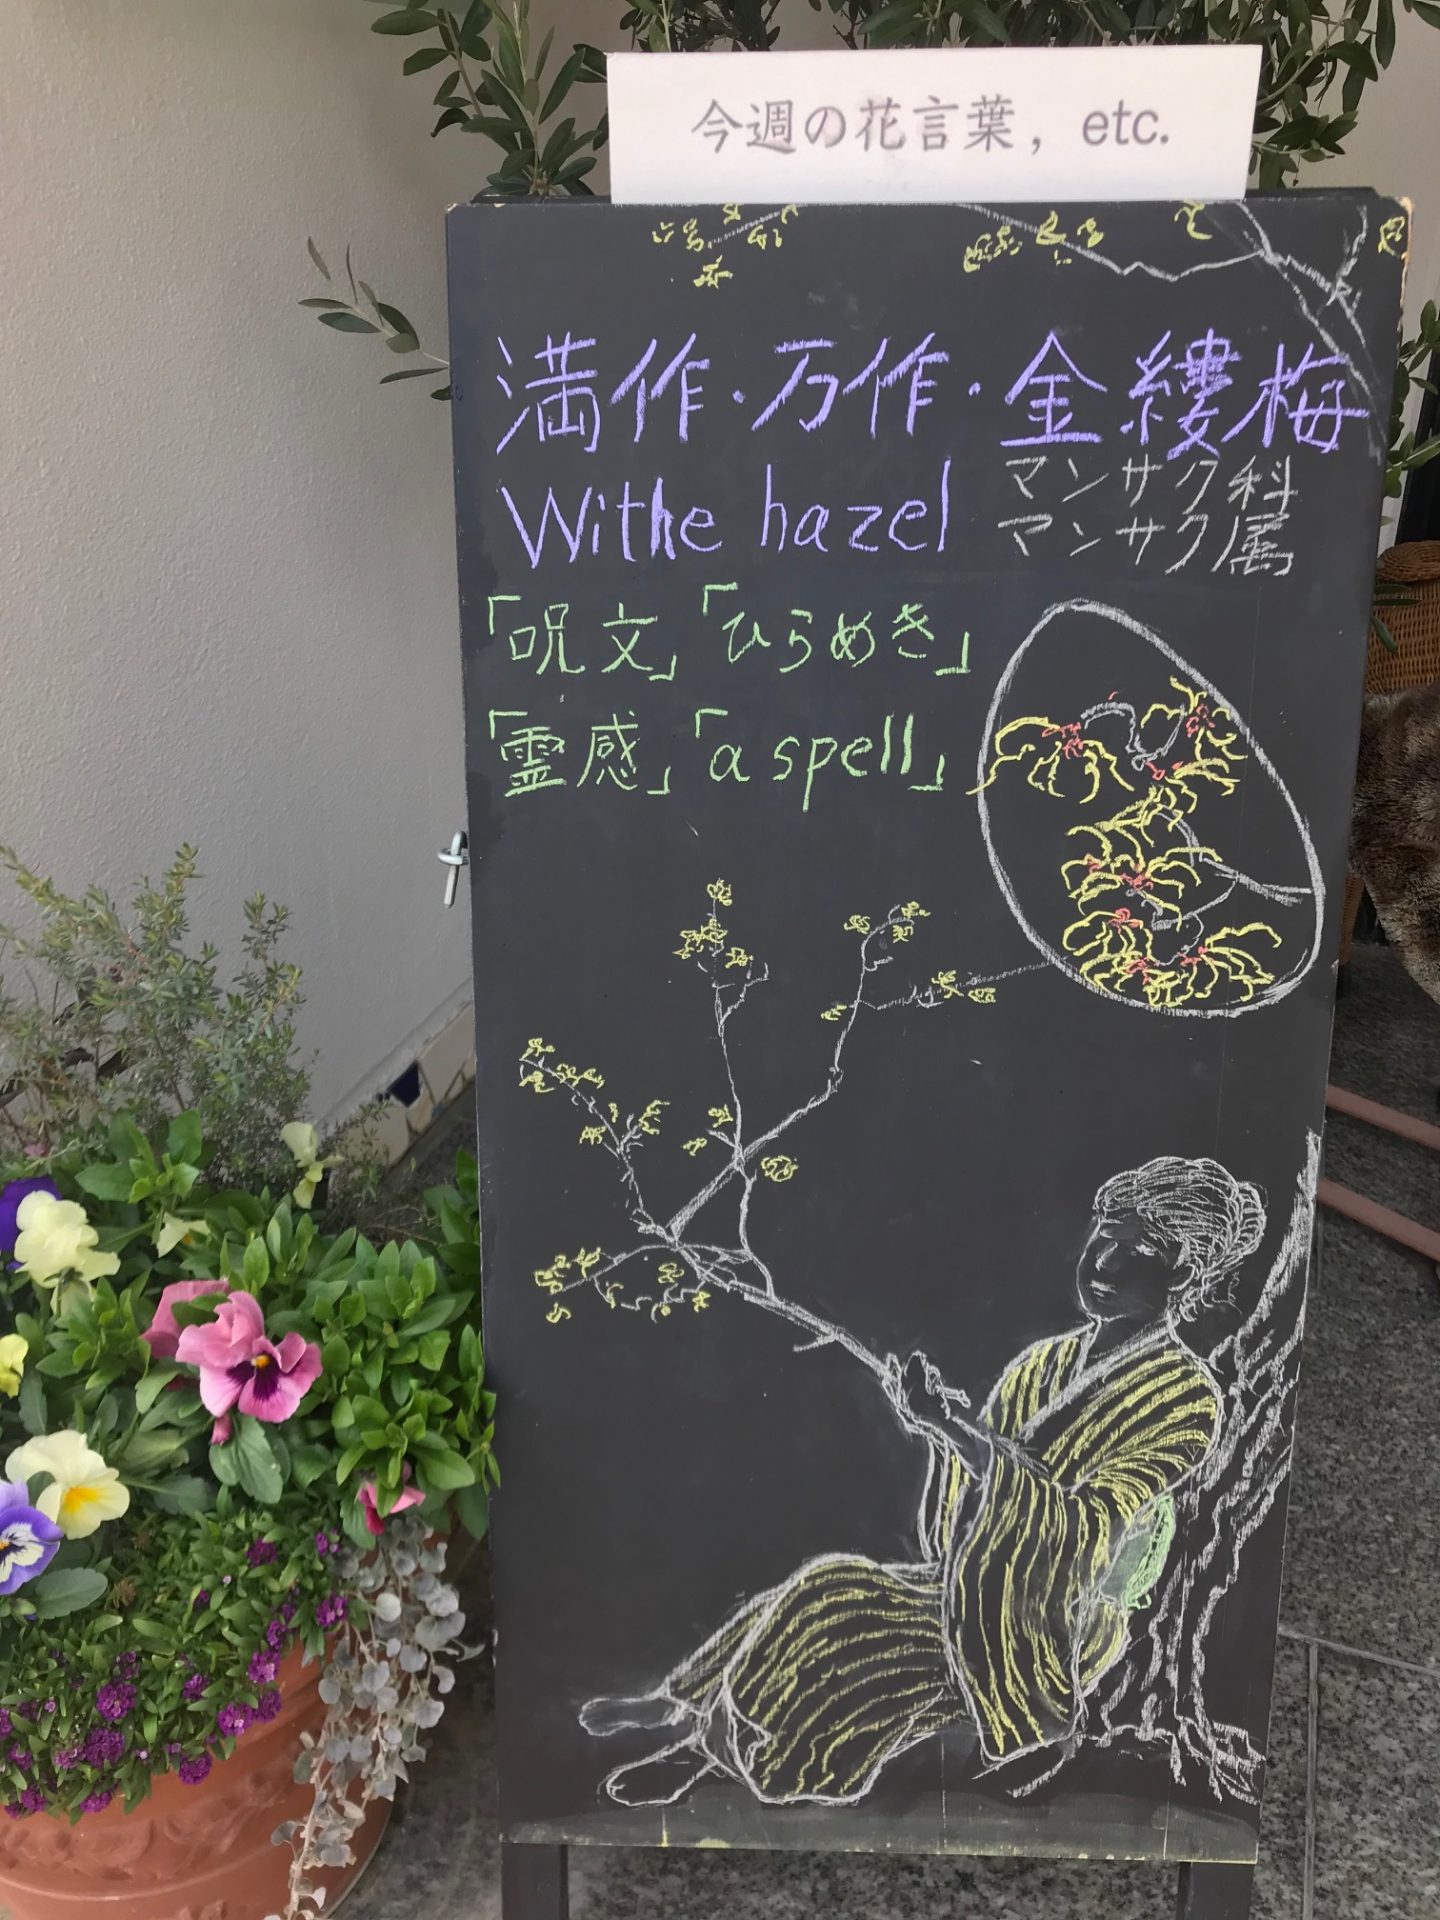 今週の花言葉, etc.
満作・万作・金縷梅
Withe hazel
マンサク科
マンサク属
「呪文」「ひらめき」
「霊感」「a spell」